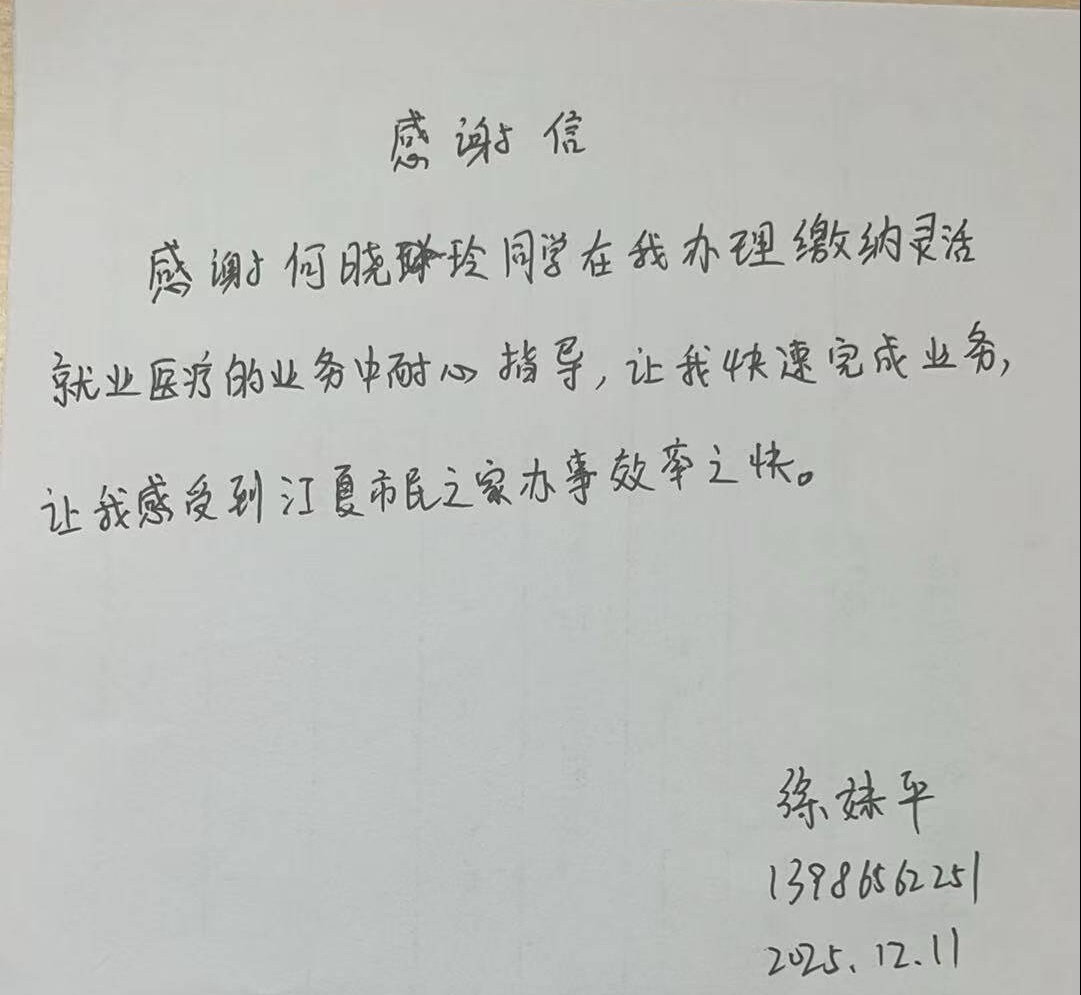 感谢信
感谢何晓玲同学在我办理缴纳灵活
就业医疗的业务中耐心指导,让我快速完成业务,
让我感受到江夏市民之家办事效率之快。
徐妹平
13986562251
2025.12.11